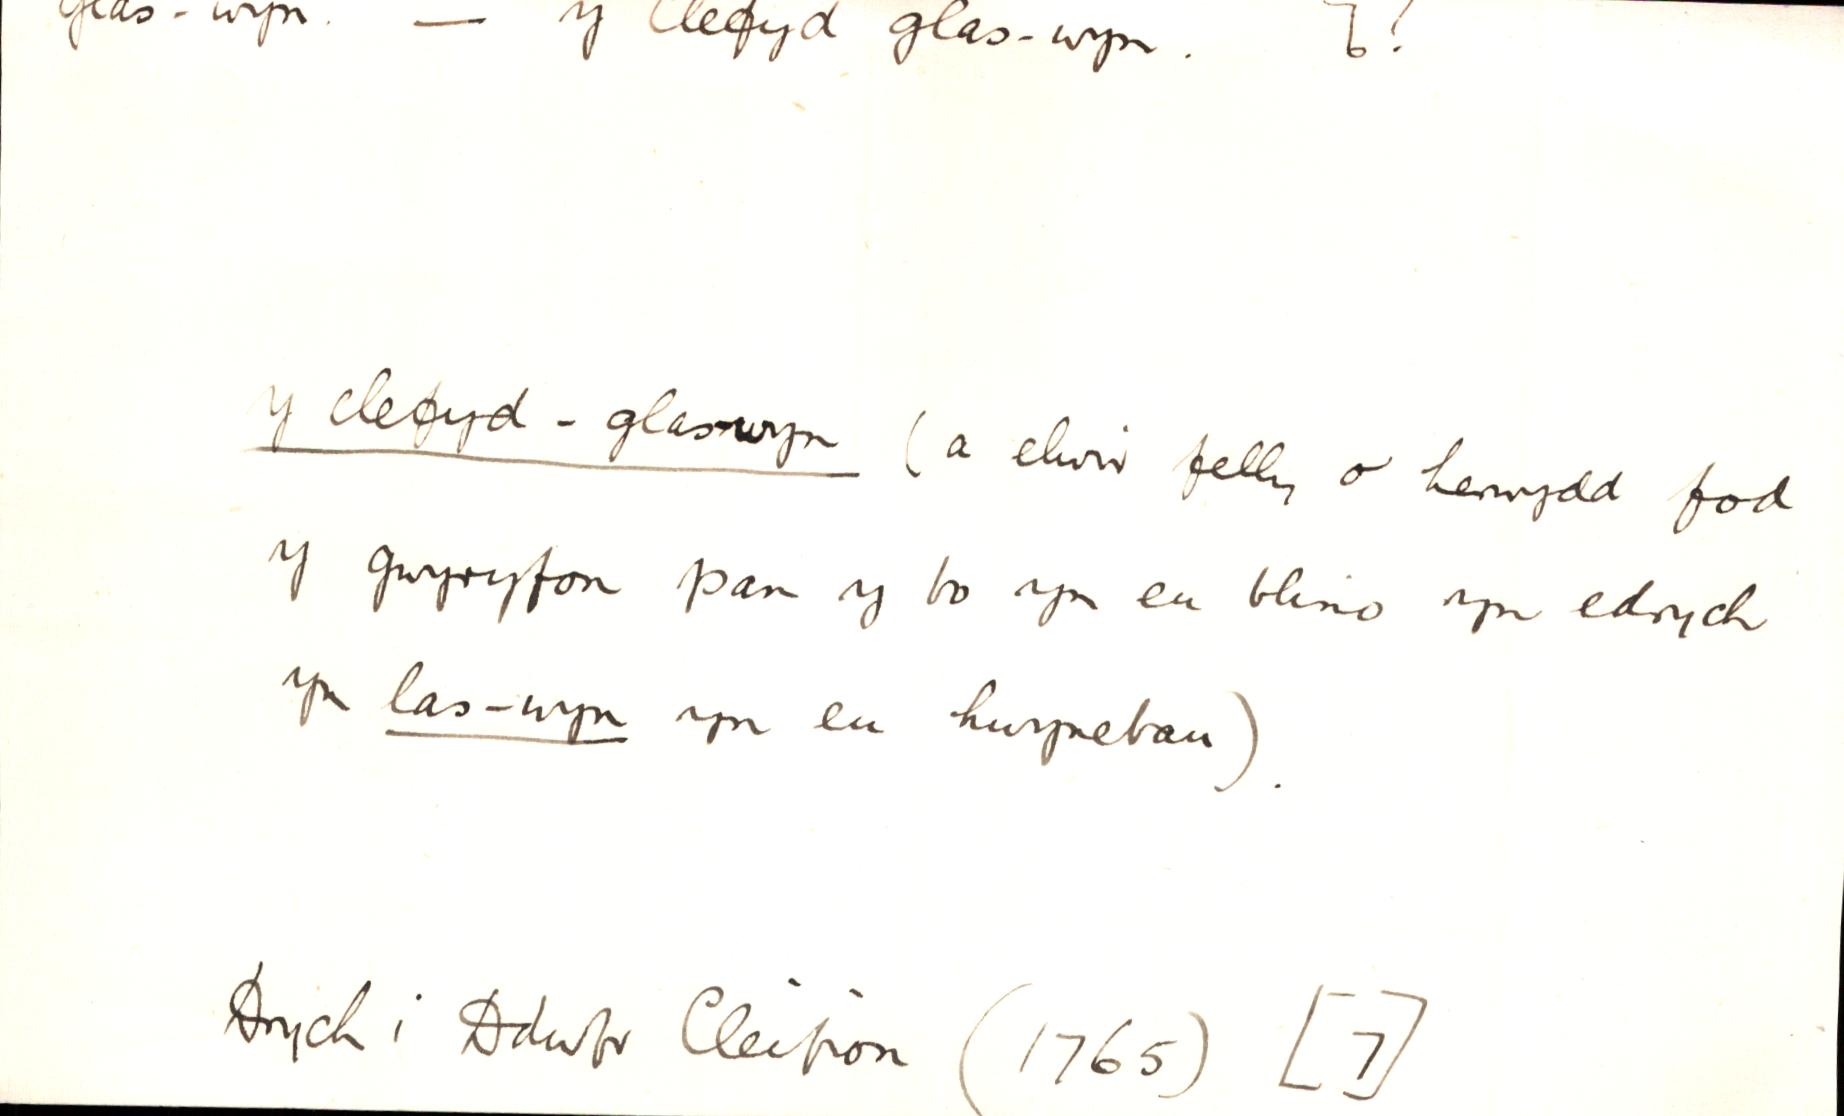 glas-wyn. — y Clefyd glas-wyn.
y clefyd - glaswyn (a elwir felly o herwydd fod
y gwyryfon pan y bo yn eu blino yn edrych
yn las-wyn yn eu hwynebau).
Drych i Ddwfr Cleifion (1765) [7]